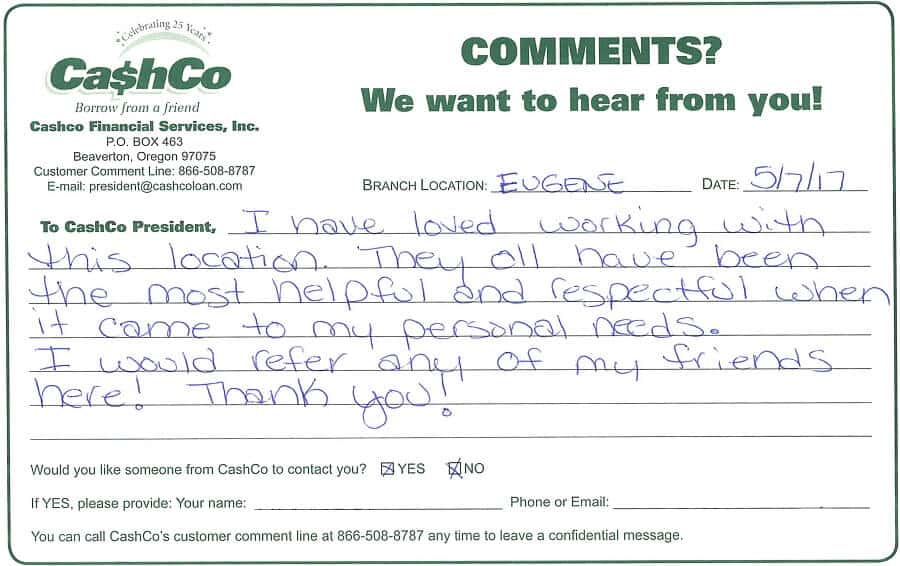 Celebrating 25 Years
Ca$hCo
Borrow from a friend
Cashco Financial Services, Inc.
P.O. BOX 463
Beaverton, Oregon 97075
Customer Comment Line: 866-508-8787
E-mail: president@cashcoloan.com
COMMENTS?
We want to hear from you!
BRANCH LOCATION: EUGENE DATE: 5/7/17
To CashCo President, I have loved working with
this location. They all have been
the most helpful and respectful when
it came to my personal needs.
I would refer any of my friends
here! Thank you!
Would you like someone from CashCo to contact you? ☒ YES ☒ NO
If YES, please provide: Your name: Phone or Email:
You can call CashCo's customer comment line at 866-508-8787 any time to leave a confidential message.